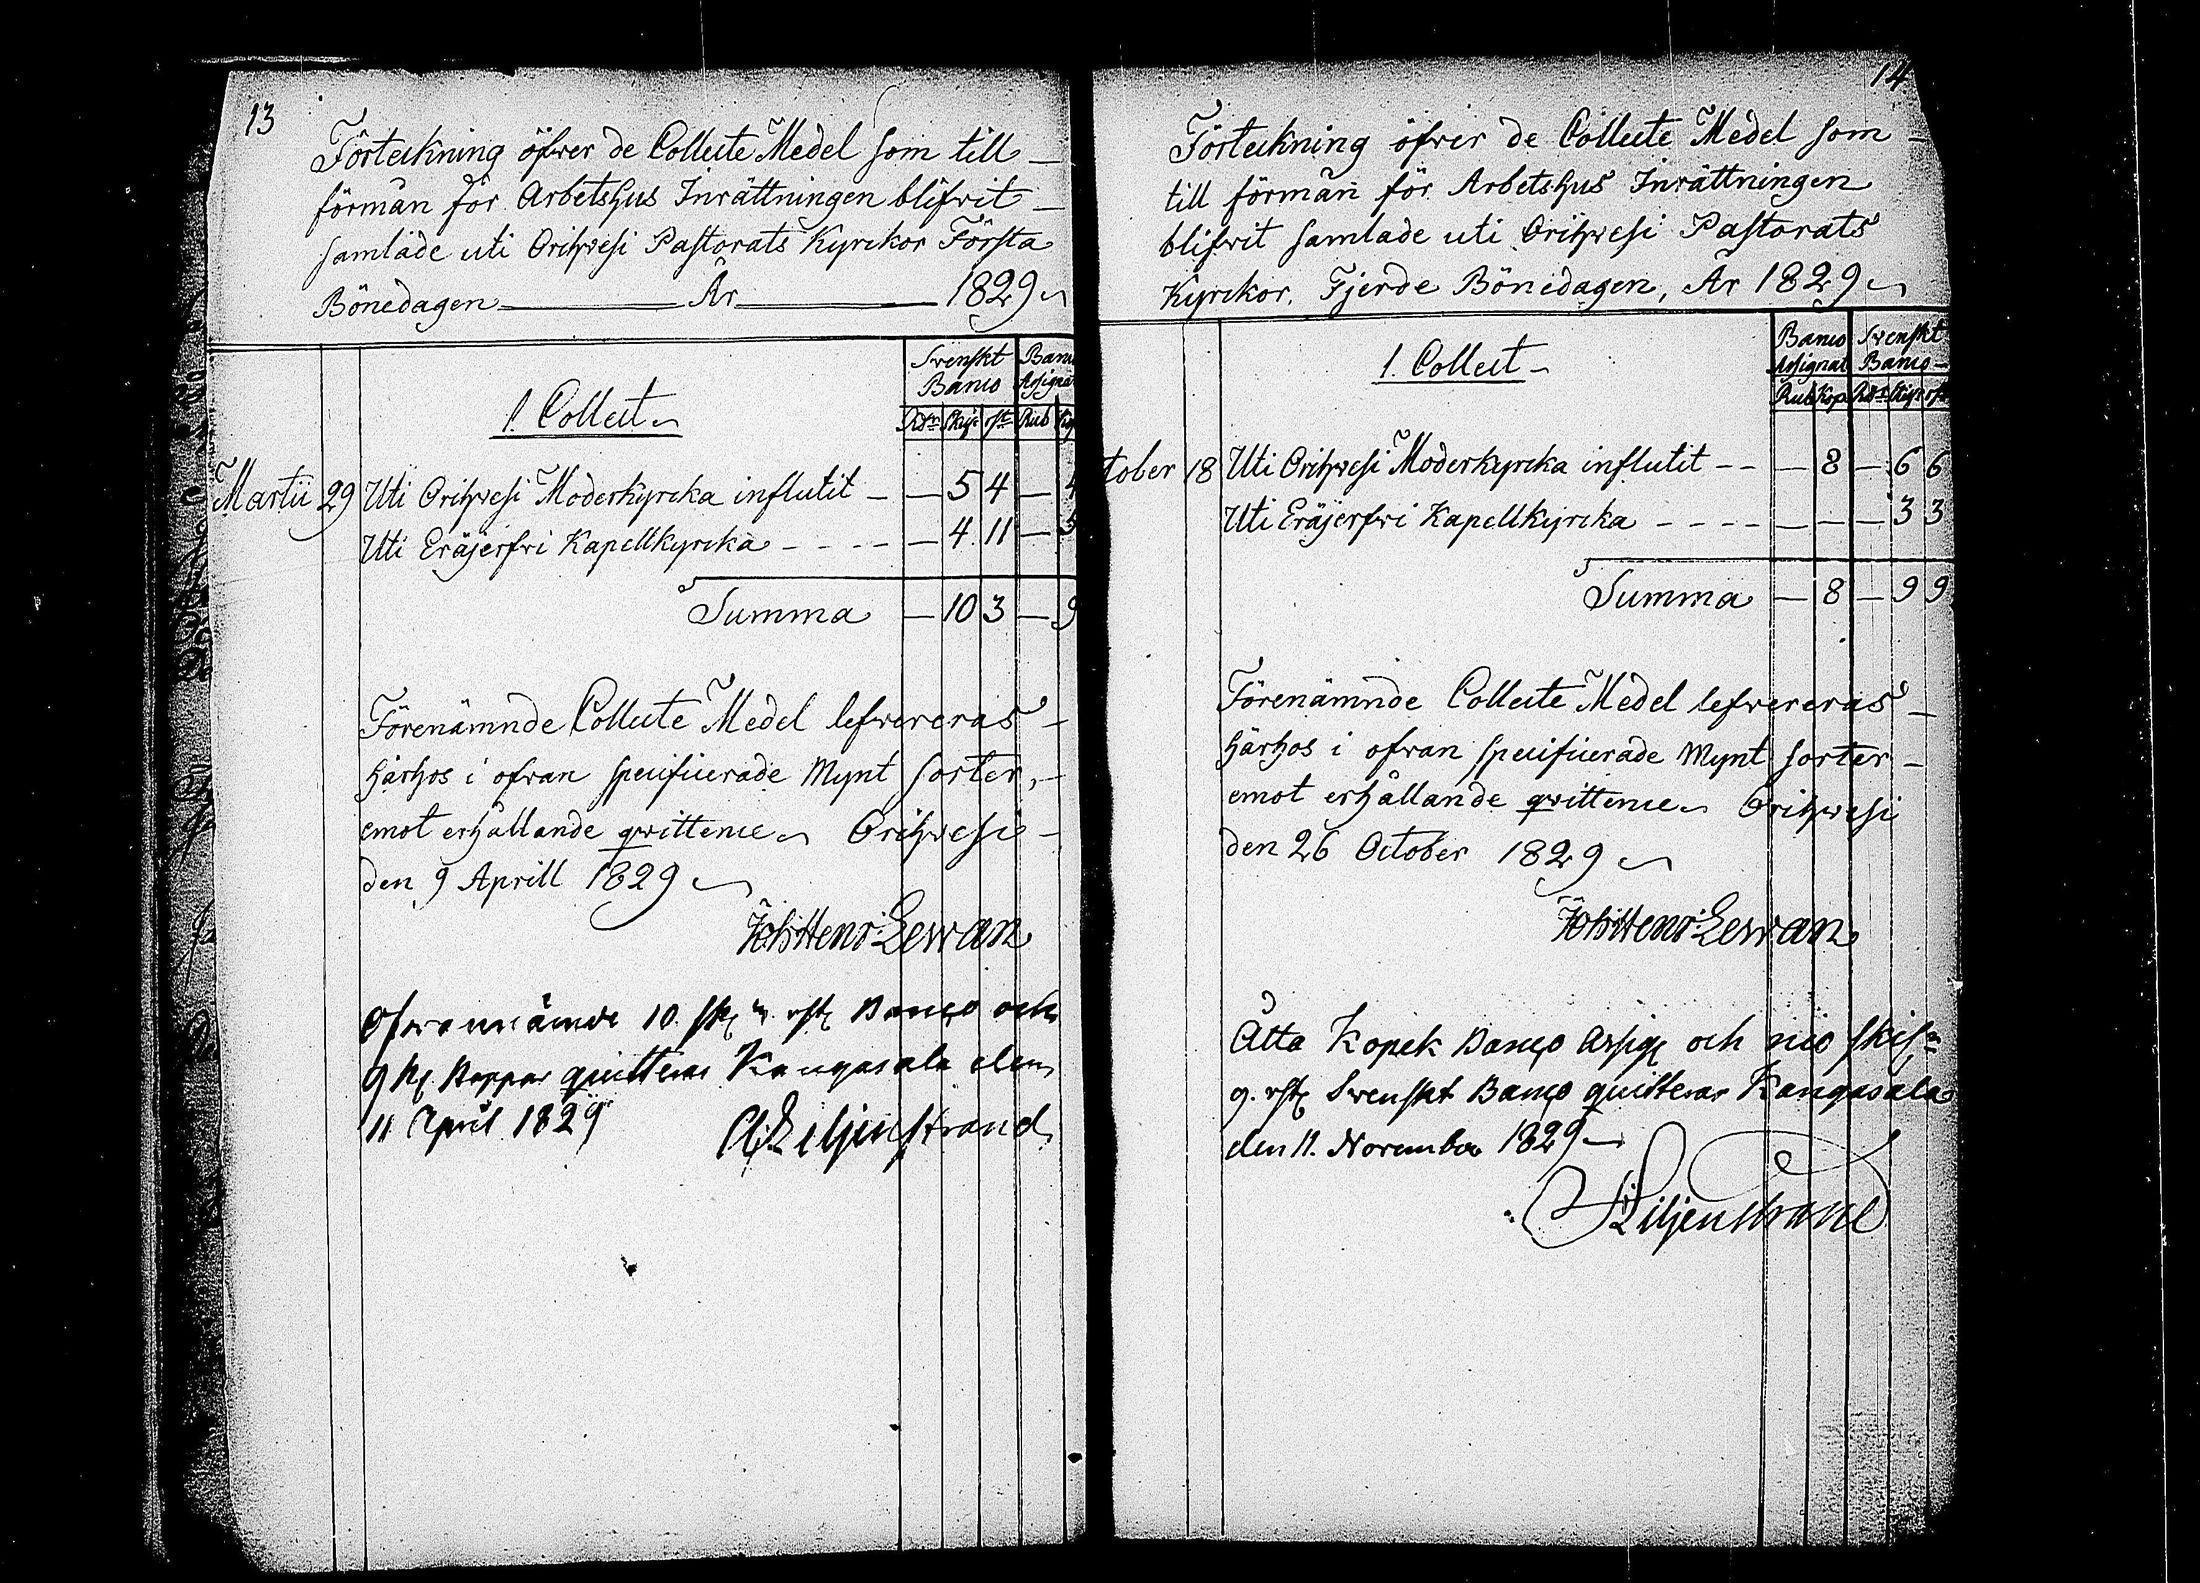 13
Förteckning öfwer de Collecte Medel som till
förmån för Arbetshus Inrättningen blifwit
samlade uti Orihwesi Pastorats Kyrckor Första
Bönedagen År 1829
Swenskt Banco
Banco Assignat
1. Collect
Rdr Skg rst Rub Kop
Martii 29 Uti Orihwesi Moderkyrcka influtit - - 5 4 - 4
Uti Eräjerfwi Kapellkyrcka - - - - - 4 11 - 5
Summa - 10 3 - 9
Förenämnde Collecte Medel lefwereras
härhos i ofwan specificerade Mynt sorter,
emot erhållande qwittence Orihwesi
den 9 Aprill 1829
Joh: Henr: Lewan
Ofwannämde 10 sk 3 rst Banco och
9 Kopp quitteras Kangasala den
11 April 1829 Liljenstrand
14
Förteckning öfwer de Collecte Medel som
till förmån för Arbetshus Inrättningen
blifwit samlade uti Orihwesi Pastorats
Kyrckor, Fjerde Bönedagen, År 1829
Banco Assignat
Swenskt Banco
1. Collect
Rub Kop Rdr Skg rst
tober 18 Uti Orihwesi Moderkyrcka influtit - - - 8 - 6 6
Uti Eräjerfwi Kapellkyrcka - - - - - - - 3 3
Summa - 8 - 9 9
Förenämnde Collecte Medel lefwereras
härhos i ofwan specificerade Mynt sorter
emot erhållande qwittence Orihwesi
den 26 October 1829
Joh: Henr: Lewan
Åtta Kopek Banco Assig och nio skg
9. rst Swenskt Banco quitteras Kangasala
den 11. November 1829
Liljenstrand